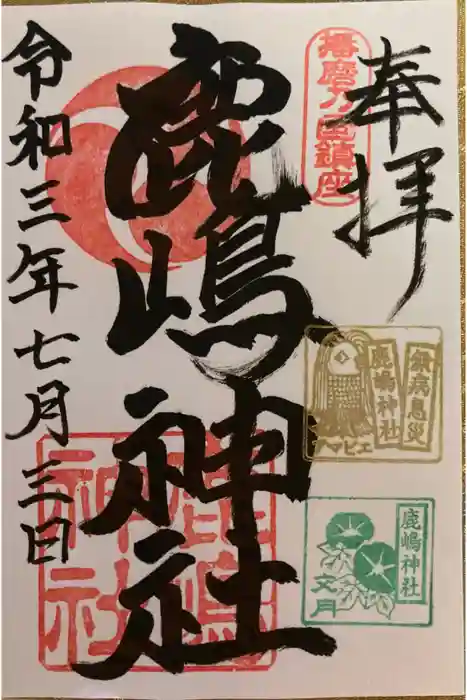 奉拝
播磨乃国鎮座
鹿嶋神社
令和三年七月三日
鹿嶋神社
無病息災
鹿嶋神社
アマビエ
鹿嶋神社
文月